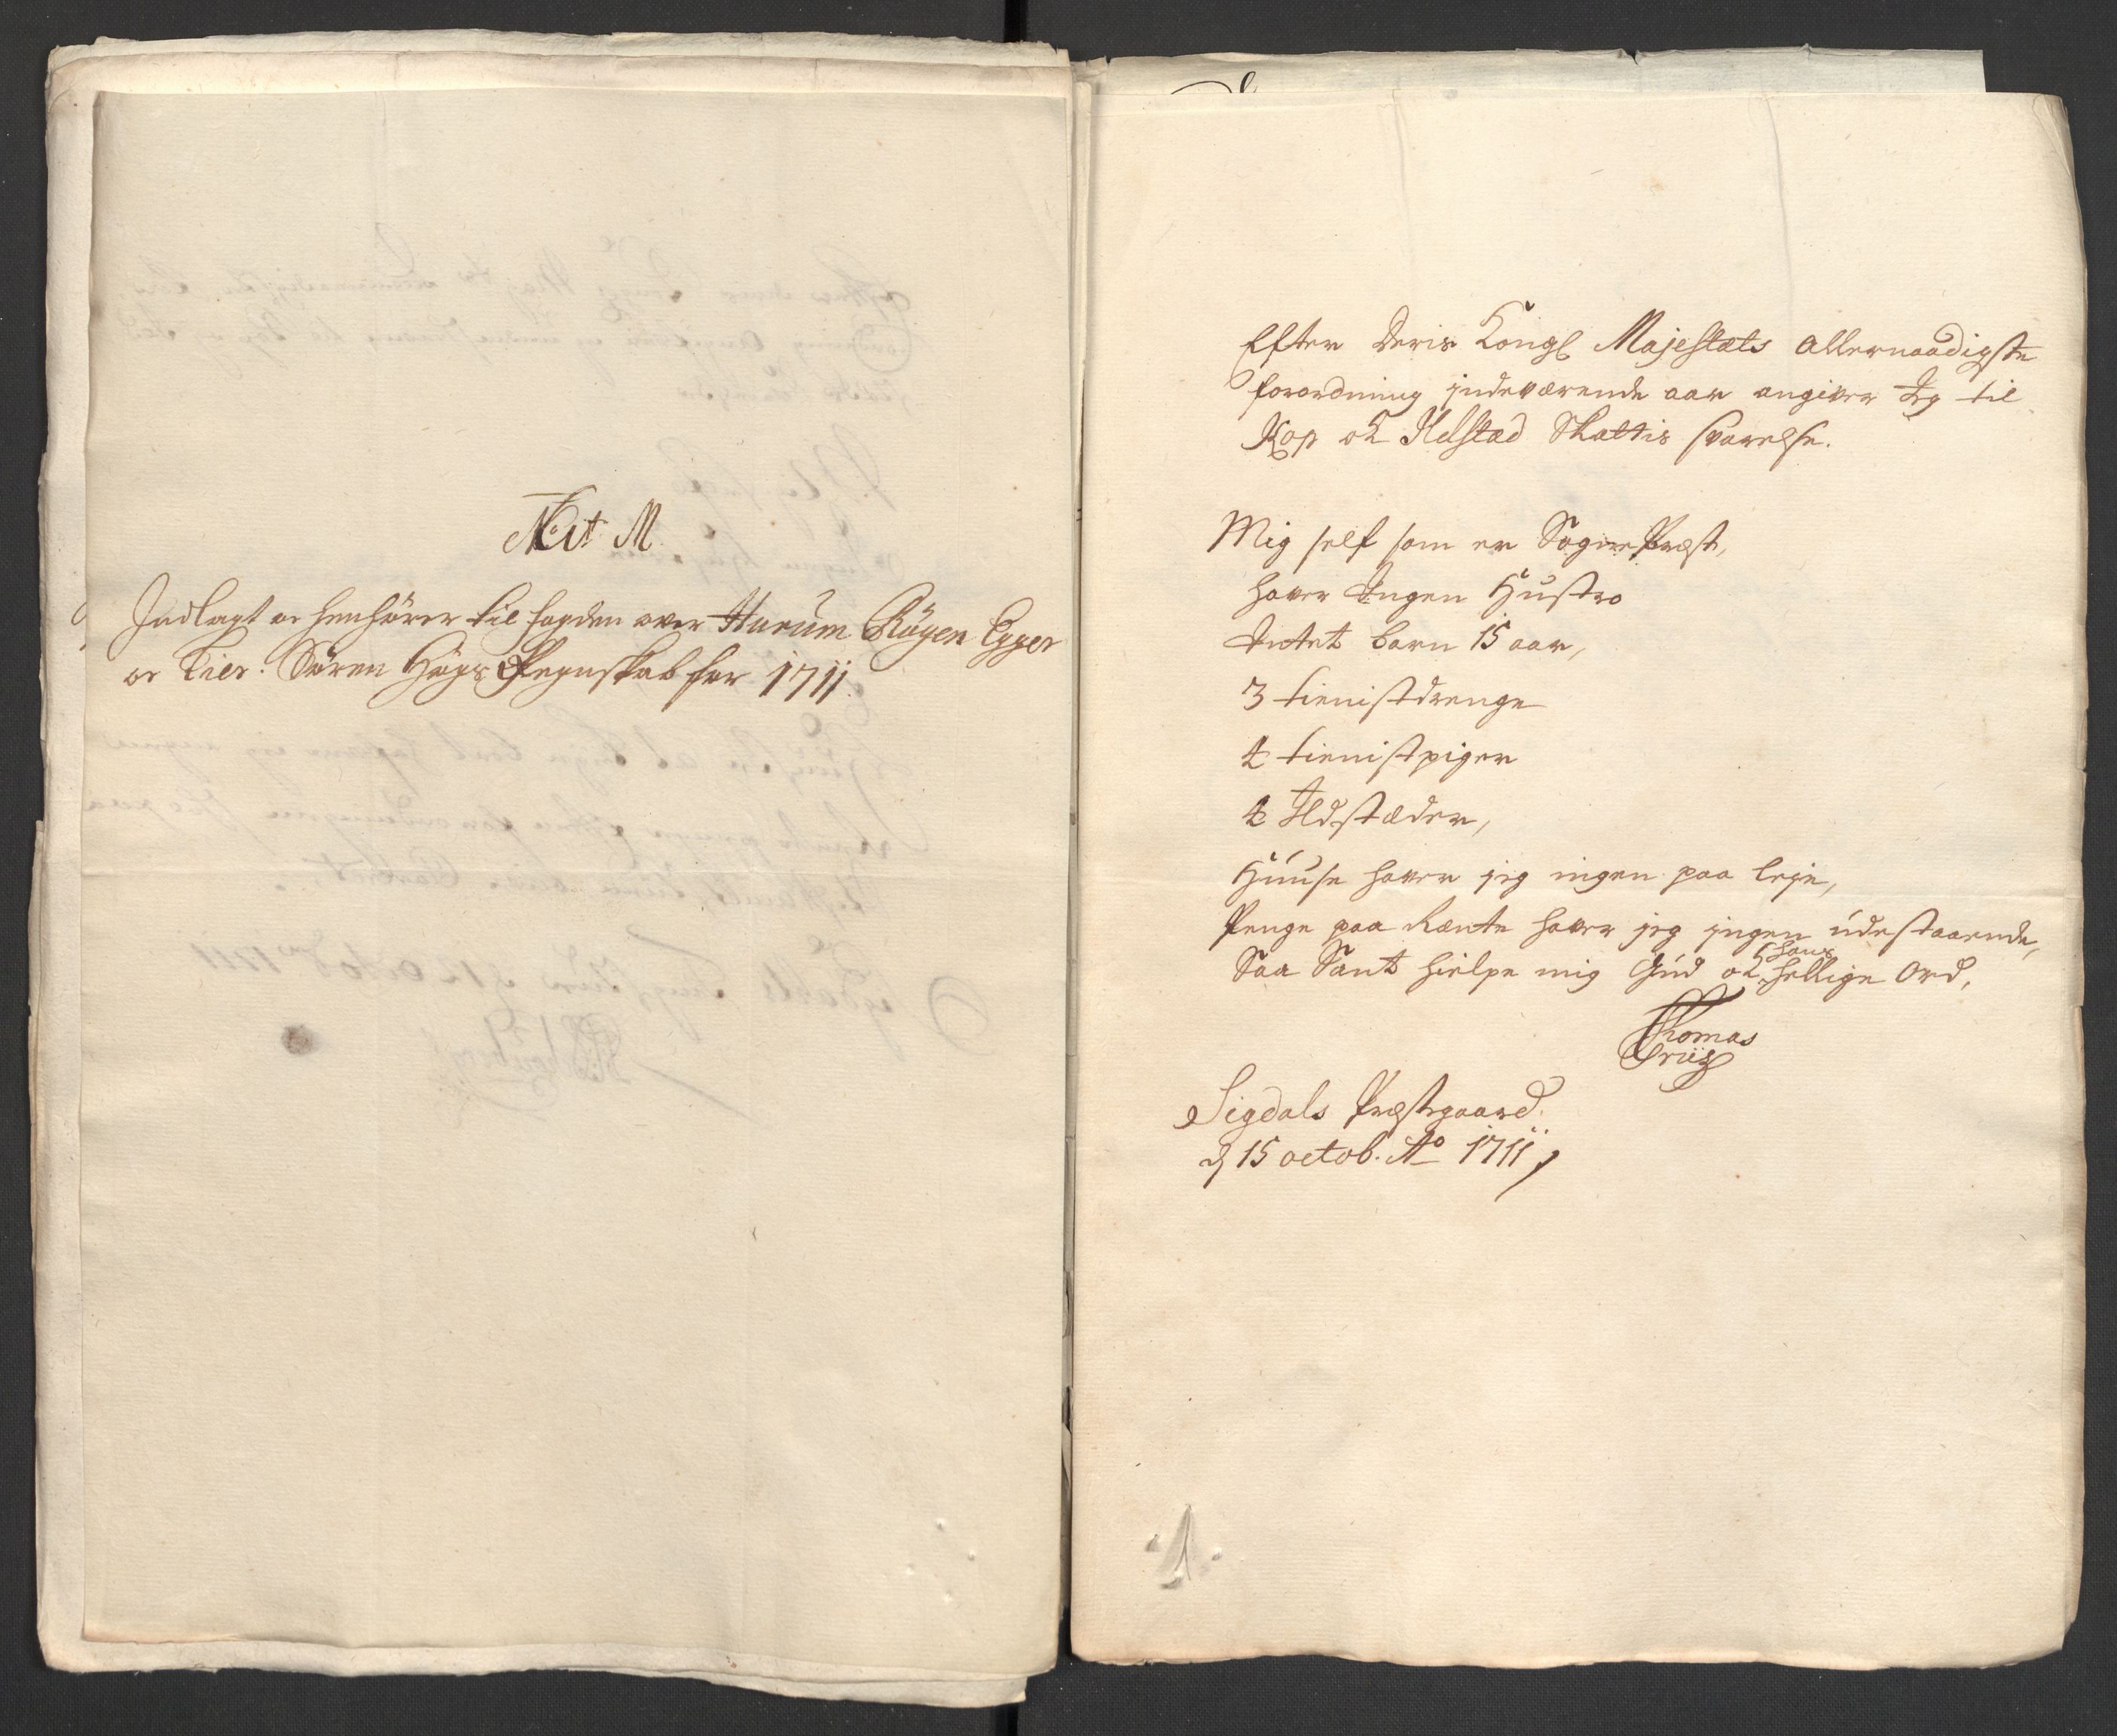 Lit M
Indlagt oc henhörer til fogden over Hurúm Röyen Egger
oc Lier: Sören Högs Regnskab for 1711.
Efter deris Kongl Majestæts allernaadigste
forordning indeværende aar angiver Jeg til
Kop ok Ildsted Skattis svarelse.
Mig self som er SognePræst,
haver Ingen Hústro
Intet barn 15 aar,
3 tienistdrenge
4 tienistpiger
4 Ildstæder,
Húuse haver jeg ingen paa leje,
Penge paa Rænte haver jeg ingen údestaaende,
Saa Sant hielpe mig Gúd ok hans hellige Ord,
Thomas
Sigdals Præstegaard.
d 15 octob. Ao 1711,